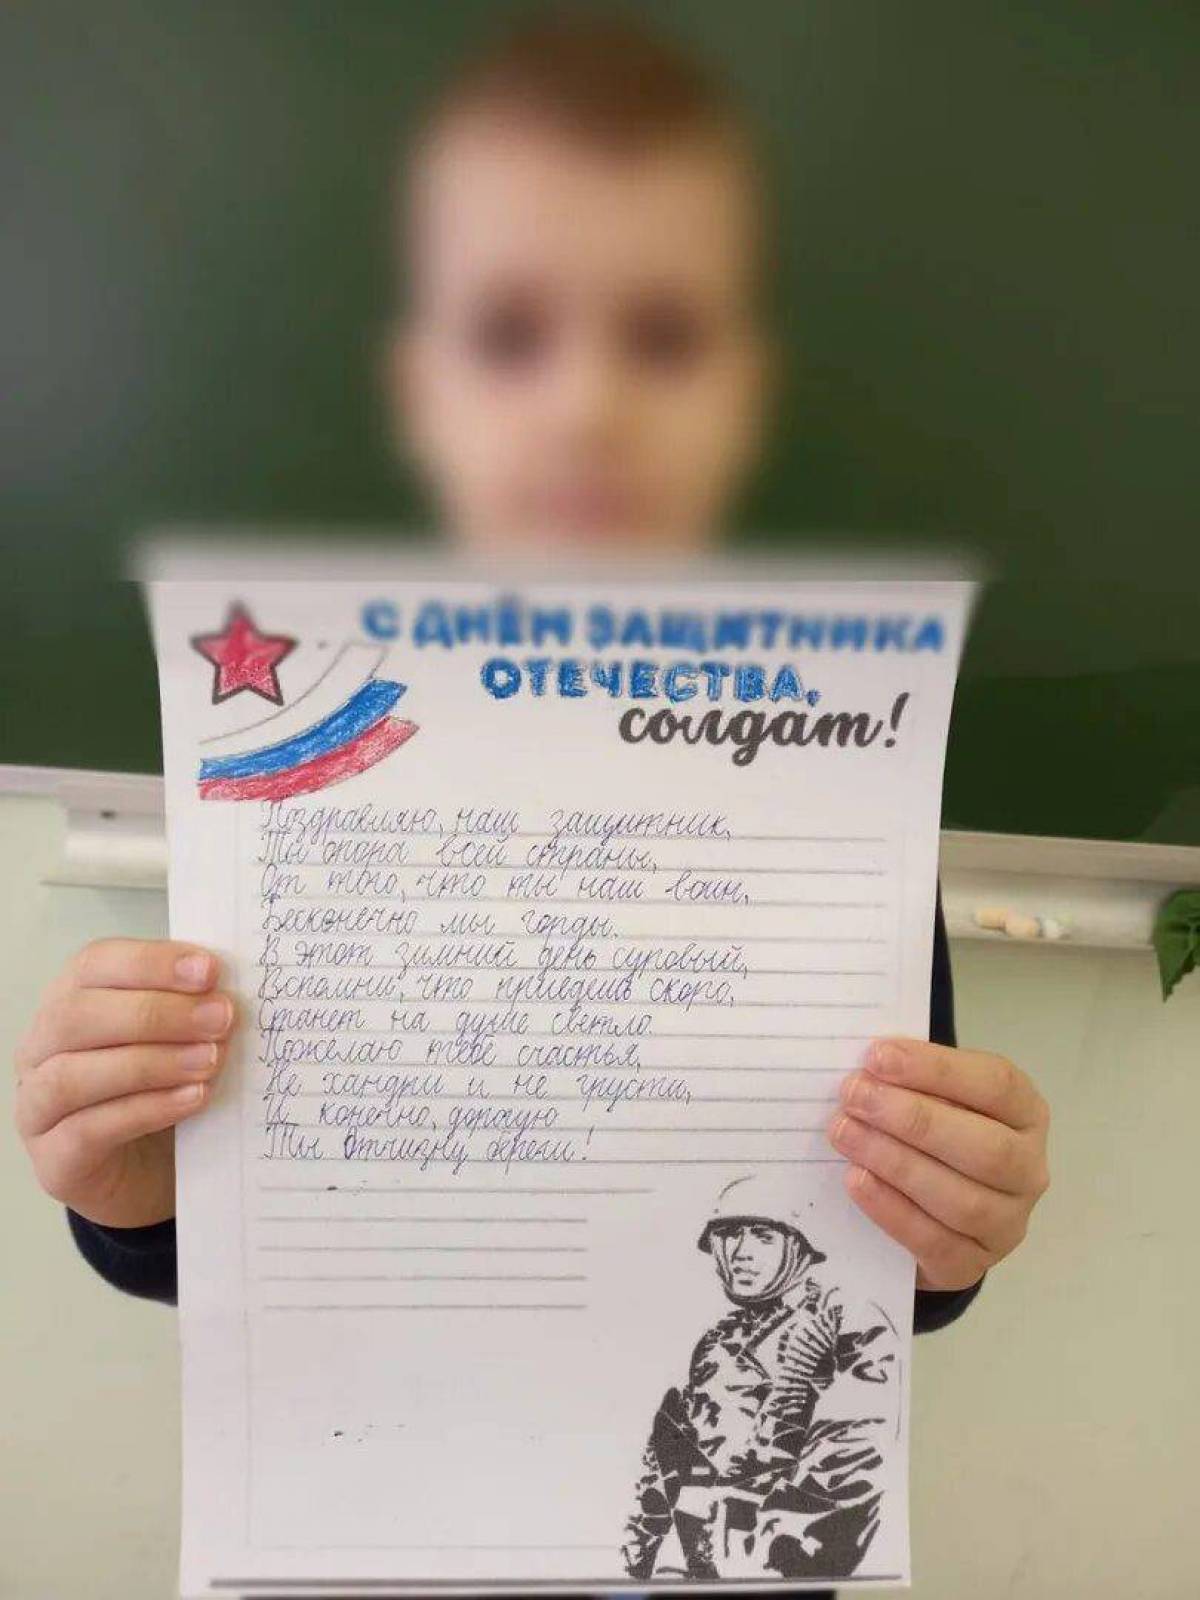 С ДНЁМ ЗАЩИТНИКА
ОТЕЧЕСТВА,
солдат!
Поздравляю, наш защитник,
Ты опора всей страны,
От того, что ты наш воин,
Бесконечно мы горды.
В этот зимний день суровый,
Вспомни, что приедешь скоро,
Станет на душе светло.
Пожелаю тебе счастья,
Не хандри и не грусти,
И конечно, дорогую
Ты Отчизну береги!